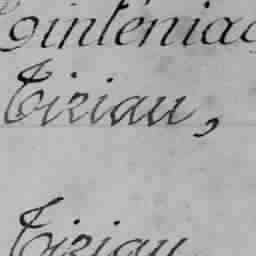 Tinténiac
Tiziau,
Tiziau